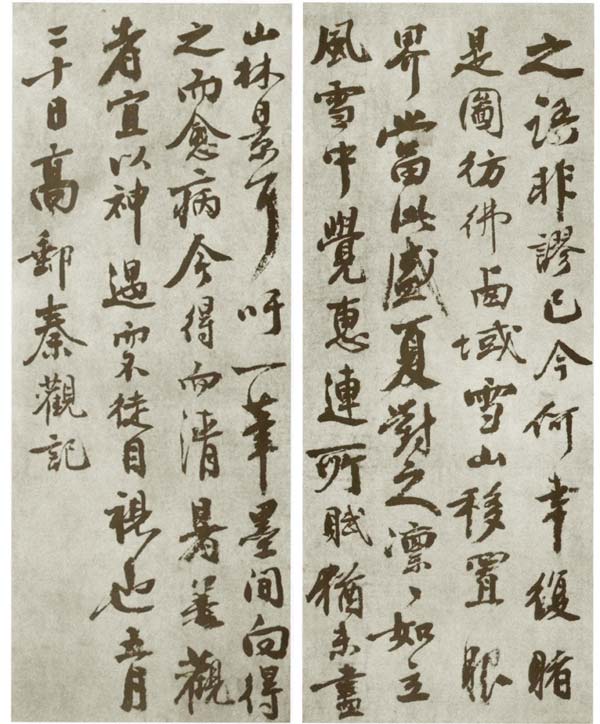 之語非謬已今何幸復睹
是圖彷彿西域雪山移置眼
界當此盛夏對之凜〻如立
風雪中覺惠連所賦猶未盡
山林景耳吁一筆墨間向得
之而愈病今得而清暑善觀
者宜以神遇而不徒目視也五月
二十日高郵秦觀記